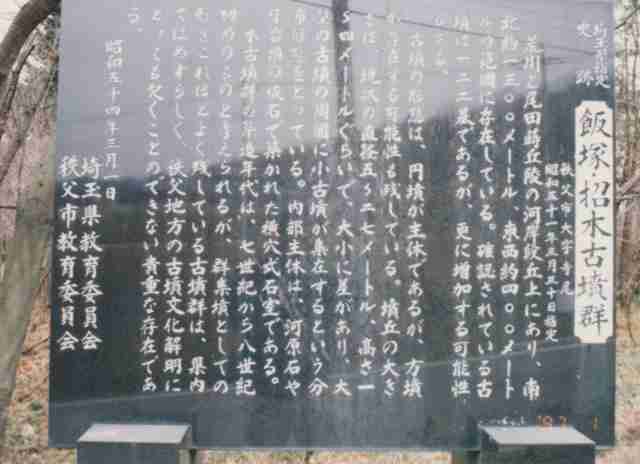 埼玉県指定
史跡
飯塚・招木古墳群
秩父市大字寺尾
昭和五十一年三月三十日指定
荒川と尾田蒔丘陵の河岸段丘上にあり、南
北約一三〇〇メートル、東西約四〇〇メート
ルの範囲に存在している。確認されている古
墳は一二二基であるが、更に増加する可能性
古墳の形態は、円墳が主体であるが、方墳
の存在する可能性も残している。墳丘の大き
さは、現状の直径五～二七メートル、高さ一
～四メートルぐらいで、大小に差があり、大
型の古墳の周囲に小古墳が集在するという分
布状態をとっている。内部主体は、河原石や
片岩の板石で築かれた横穴式石室である。
本古墳群の築造年代は、七世紀から八世紀
初めのものと考えられるが、群集墳としての
形をこれほどよく残している古墳群は、県内
ではめずらしく、秩父地方の古墳文化解明に
とっても欠くことのできない貴重な存在であ
る。
昭和五十四年三月一日
埼玉県教育委員会
秩父市教育委員会